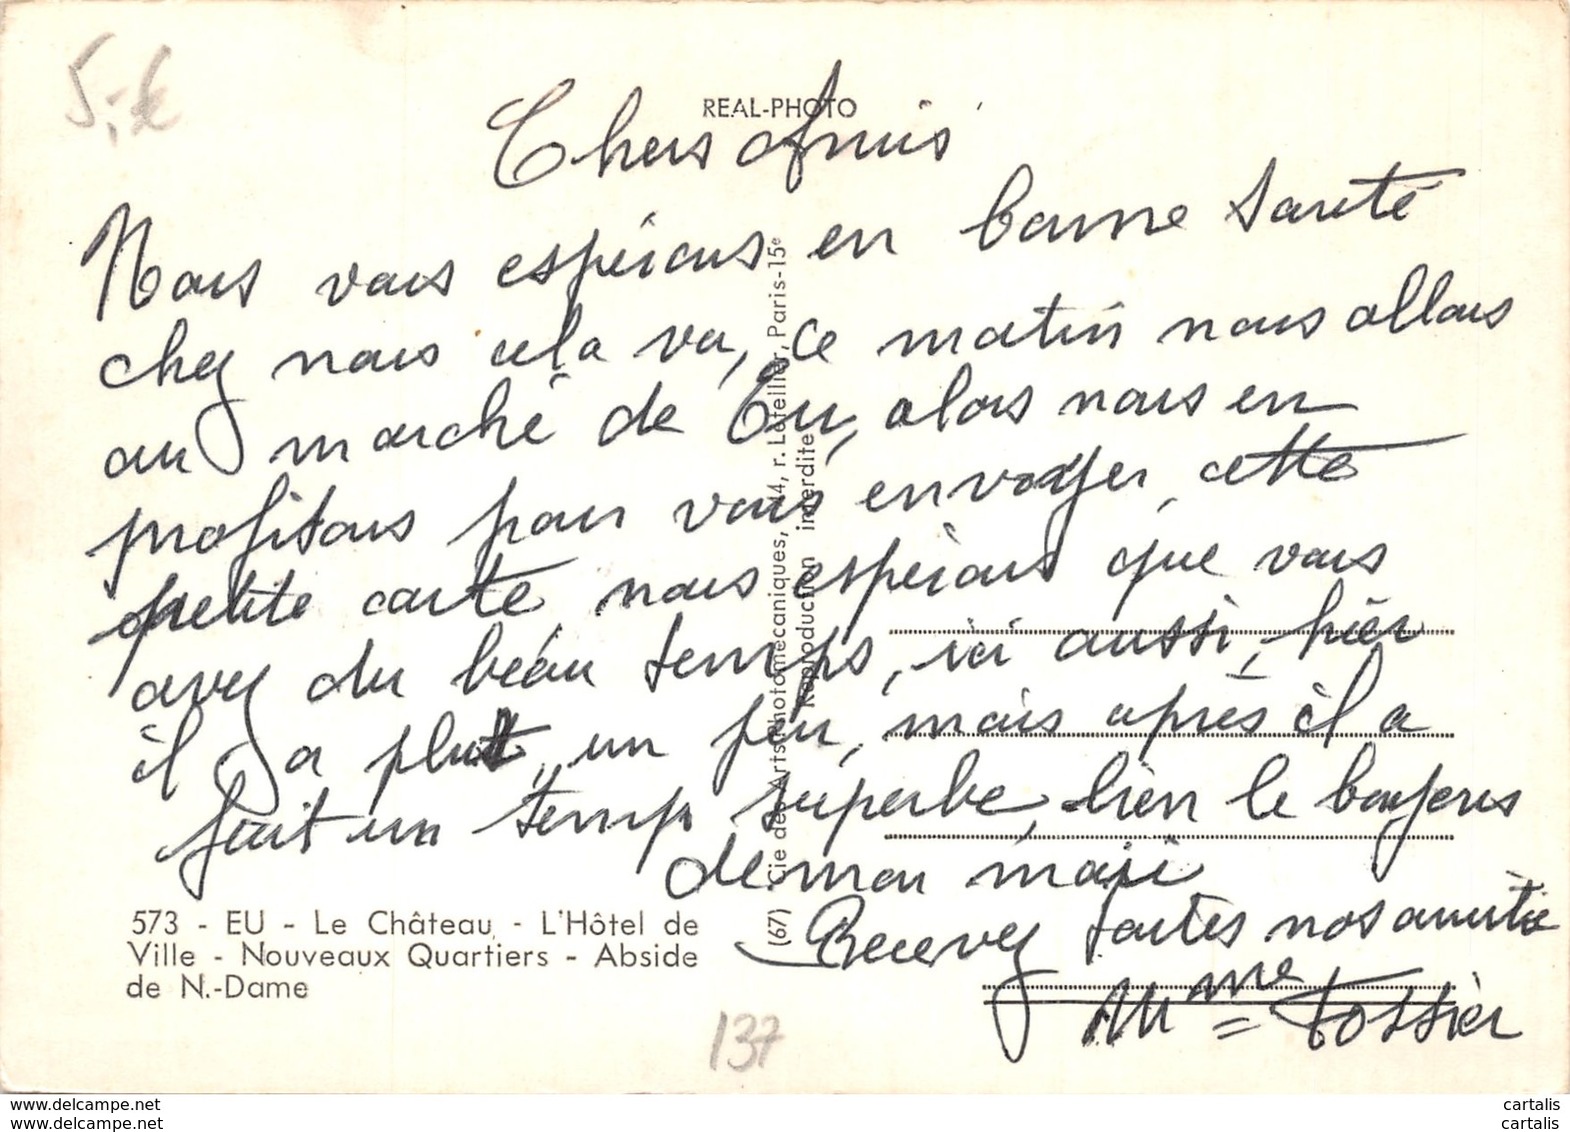 5,-€
REAL-PHOTO
Chers Amis
Nous vous espérons en bonne santé
chez nous cela va, ce matin nous allons
au marché de Eu, alors nous en
profitons pour vous envoyer, cette
petite carte nous espérons que vous
avez du beau temps, ici aussi, hier
il y a plut, un peu, mais après il a
fait un temps superbe, bien le
de mon mari
Recevez toutes nos amitié
Mme Tossier
(67) Cie des Arts Photomécaniques, 44, r. Letellier, Paris-15e
Reproduction interdite
573 - EU - Le Château - L'Hôtel de
Ville - Nouveaux Quartiers - Abside
de N.-Dame
137
cartalis.delcampe.net
www.delcampe.net
cartalis
cartalis